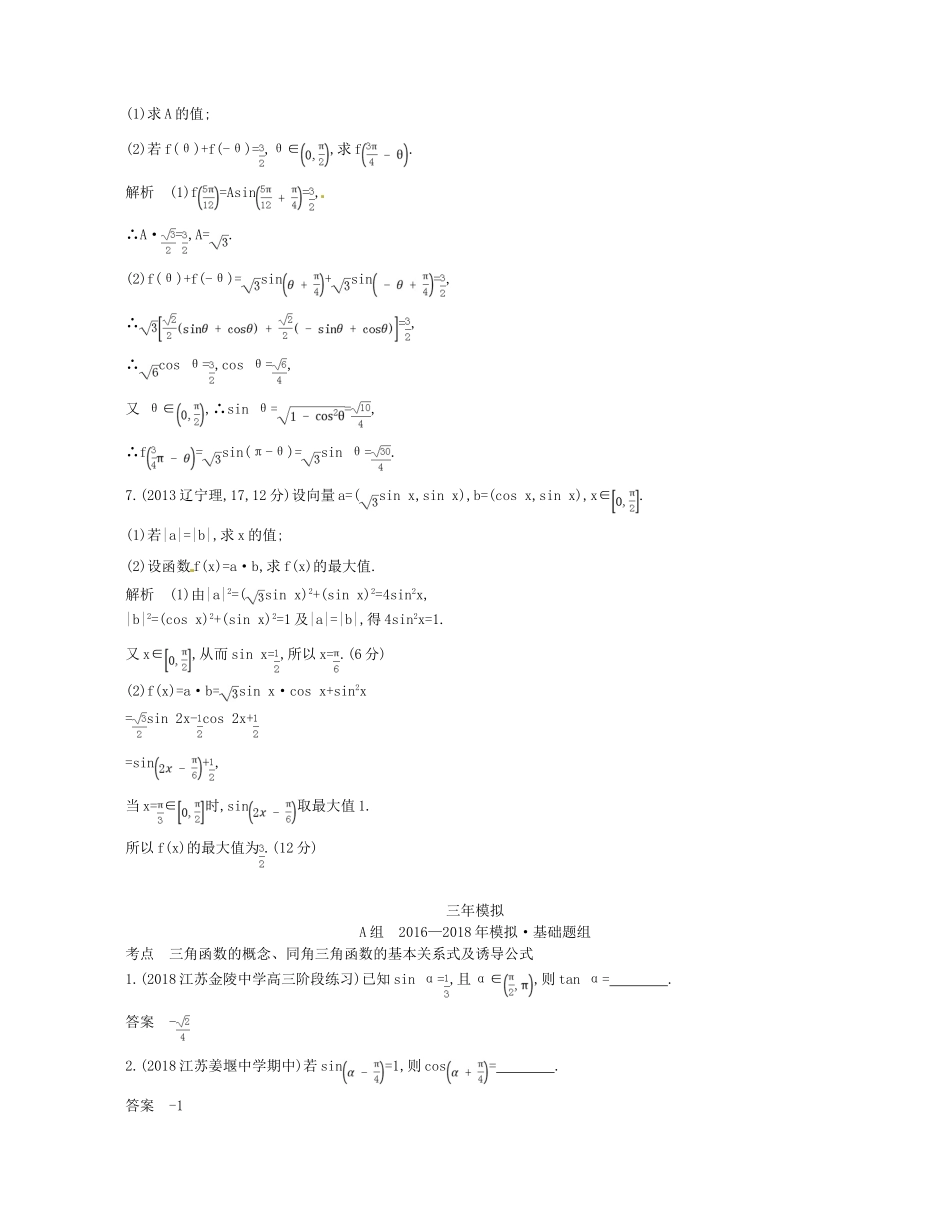 (1)求 A 的值;
(2)若 f(θ)+f(-θ)=3/2,θ∈(0,π/2),求 f(3π/4 - θ).
解析 (1)f(5π/12)=Asin(5π/12 + π/4)=3/2,
∴A·√3/2=3/2,A=√3.
(2)f(θ)+f(-θ)=√3sin(θ + π/4)+√3sin( - θ + π/4)=3/2,
∴√3[√2/2(sinθ + cosθ) + √2/2( - sinθ + cosθ)]=3/2,
∴√6cos θ=3/2,cos θ=√6/4,
又 θ∈(0,π/2),∴sin θ=√(1 - cos²θ)=√10/4,
∴f(3/4π - θ)=√3sin(π-θ)=√3sin θ=√30/4.
7.(2013 辽宁理,17,12 分)设向量 a=(√3sin x,sin x),b=(cos x,sin x),x∈[0,π/2].
(1)若|a|=|b|,求 x 的值;
(2)设函数 f(x)=a·b,求 f(x)的最大值.
解析 (1)由|a|²=(√3sin x)²+(sin x)²=4sin²x,
|b|²=(cos x)²+(sin x)²=1 及|a|=|b|,得 4sin²x=1.
又 x∈[0,π/2],从而 sin x=1/2,所以 x=π/6.(6 分)
(2)f(x)=a·b=√3sin x·cos x+sin²x
=√3/2sin 2x-1/2cos 2x+1/2
=sin(2x - π/6)+1/2,
当 x=π/3∈[0,π/2]时,sin(2x - π/6)取最大值 1.
所以 f(x)的最大值为3/2.(12 分)
三年模拟
A 组 2016—2018 年模拟·基础题组
考点 三角函数的概念、同角三角函数的基本关系式及诱导公式
1.(2018 江苏金陵中学高三阶段练习)已知 sin α=1/3,且 α∈(π/2,π),则 tan α=________.
答案 -√2/4
2.(2018 江苏姜堰中学期中)若 sin(α - π/4)=1,则 cos(α + π/4)=________.
答案 -1